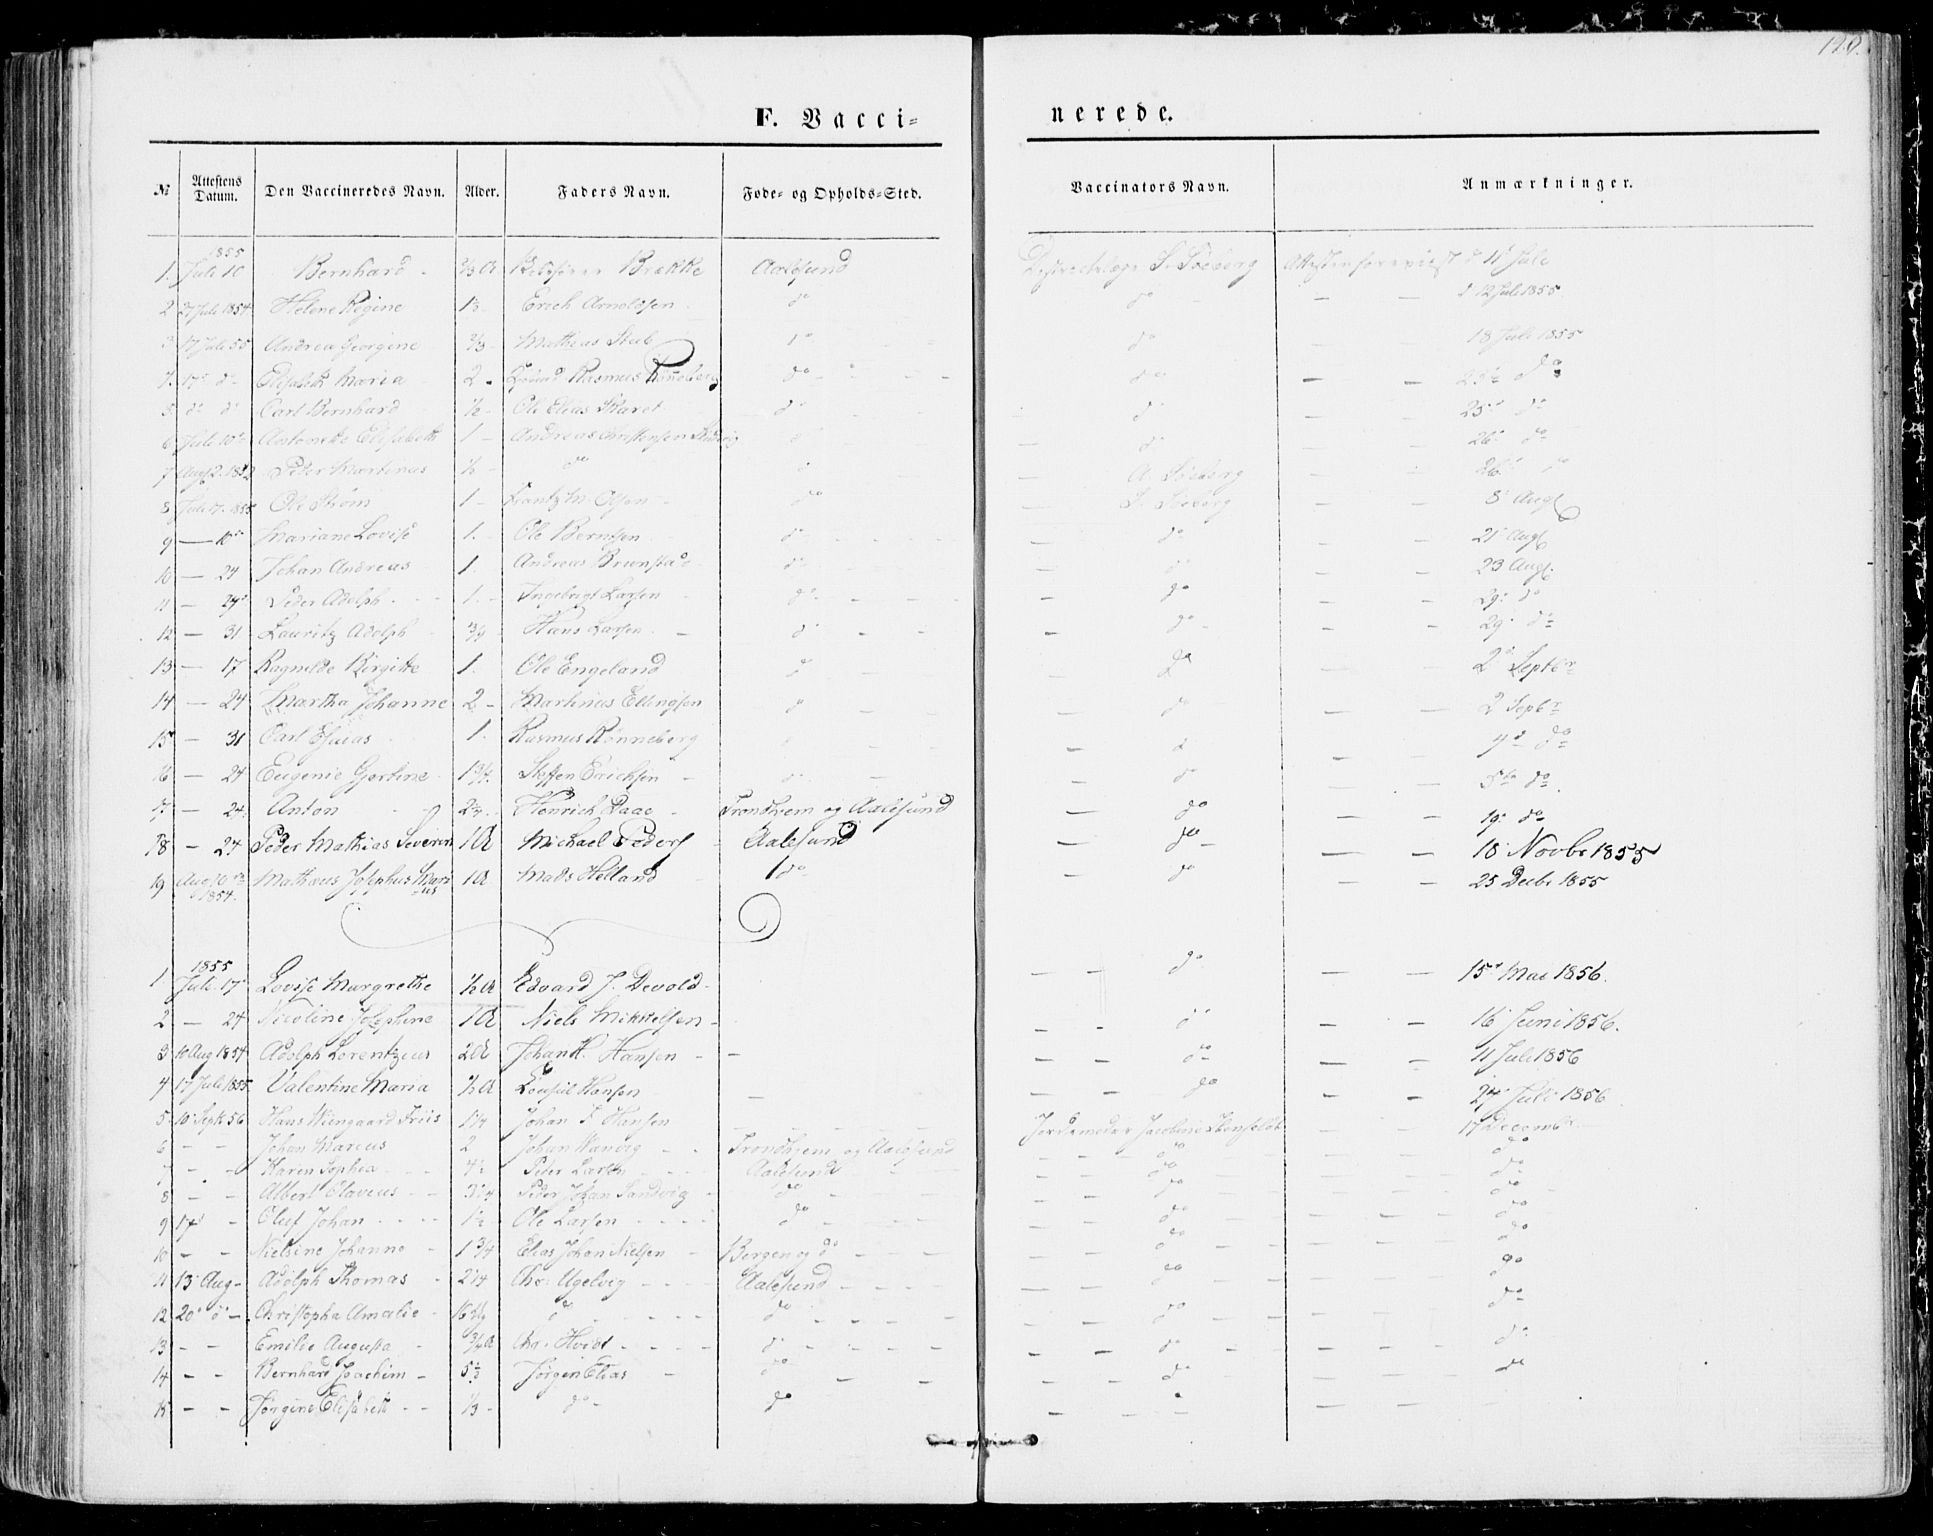 129.
F. Vacci- nerede.
№ Attestens Datum. Den Vaccineredes Navn. Alder. Faders Navn. Føde- og Opholds-Sted. Vaccinators Navn. Anmærkninger.
1855
1. Juli 10 Bernhard Brække Aalesund S. Søeberg 11 Juli
2 27 Juli 1854 Helene Regine Erich Arnoldsen do do — — 12 Juli 1855
3 17 Juli 55 Andrea Georgine 2/3 Matheus do do 18 Juli 1855
4. 17 do Elisabeth Maria 2 Rasmus Rønneberg do do — — do
5 do do Carl Bernhard 1/2 Ole Elias Skaret do do 25 do
6 Juli 10 Antonette Elisabeth 1 Andreas Christensen do do 26 do
7 Aug 2. Peder Martinus 1/2 do A. Søeberg 26 do
8 Juli 17. 1855 Ole Strøm 1 Olsen do S. Søeberg 8 Augt
9 — 10 Mariane Lovise 1. Ole Berntsen do do 21 Augt
10 — 24 Johan Andreas 1. Andreas Brunstad do do 23 Augt
11 — Peder Adolph 1. Ingebrigt Larsen do do 29 do
12 — 31 Lauritz Adolph 3/4 Hans Larsen do do 29 do
13 — 17 Ragnilde Birgitte 1. Ole Engeland do do 2 Septbr
14 — 24 Martha Johanne 2 Martinus Ellingsen do do 2 Septbr
15 — 31 Carl Esaias 1. Rasmus Rønneberg do do
16 — 24 Eugenie Gjertine 1 3/4 Steffen Erichsen do do 5te do
17 — 24 Anton Henrich Daae Trondhjem og Aalesund do — — 19 do
18 — 24 Peder Mathias Severin 1 A Michael Peders Aalesund do — — 18 Novbr 1855
19 Aug 16 1854. Mathæus Josephus Marius 1 A Mads Helland do do — — 25 Decbr 1855
1855
1 Juli 17 Lovise Margrethe 1/2 A Edvard J. Devold do — — 15 Mai 1856.
2 — 24 Nicoline Josephine 1 A Niels Mikkelsen do — — 16 Juni 1856.
3 10 Aug 1854 Adolph Lorentzius 2 A Johan H. Hansen do — — 11 Juli 1856
4 17 Juli 1855 Valentine Maria 1/2 A Hansen do — — Juli 1856
5 10 Septr 56 Hans Wiingaard Friis 1 1/4 Johan F Hansen Jordemoder Jacobine — — 17 December
6 — — Johan Marcus 2 Johan Trondhjem og Aalesund do do
7 — — Karen Sophia Peder Larsen Aalesund do do
8 — — Albert Olaveus 3 1/4 Peder Johan Sandvig do do do
9 17 — Oluf Johan 1 1/2 Ole Larsen do do do
10 — — Nielsine Johanne 1 3/4 Elias Johan Nielsen Bergen og do do do
11 13 Aug Adolph Thomas 2 1/4 Chr. Ugelvig Aalesund do do
12 20 do Christopha Amalie do do do do
13 — — Emilie Augusta 3/4 A Chr. Hvidt do do do
14 — — Bernhard Joachim 5 1/2 Jørgen Elias do do do
15 — — Jørgine Elisabeth 1/3 do do